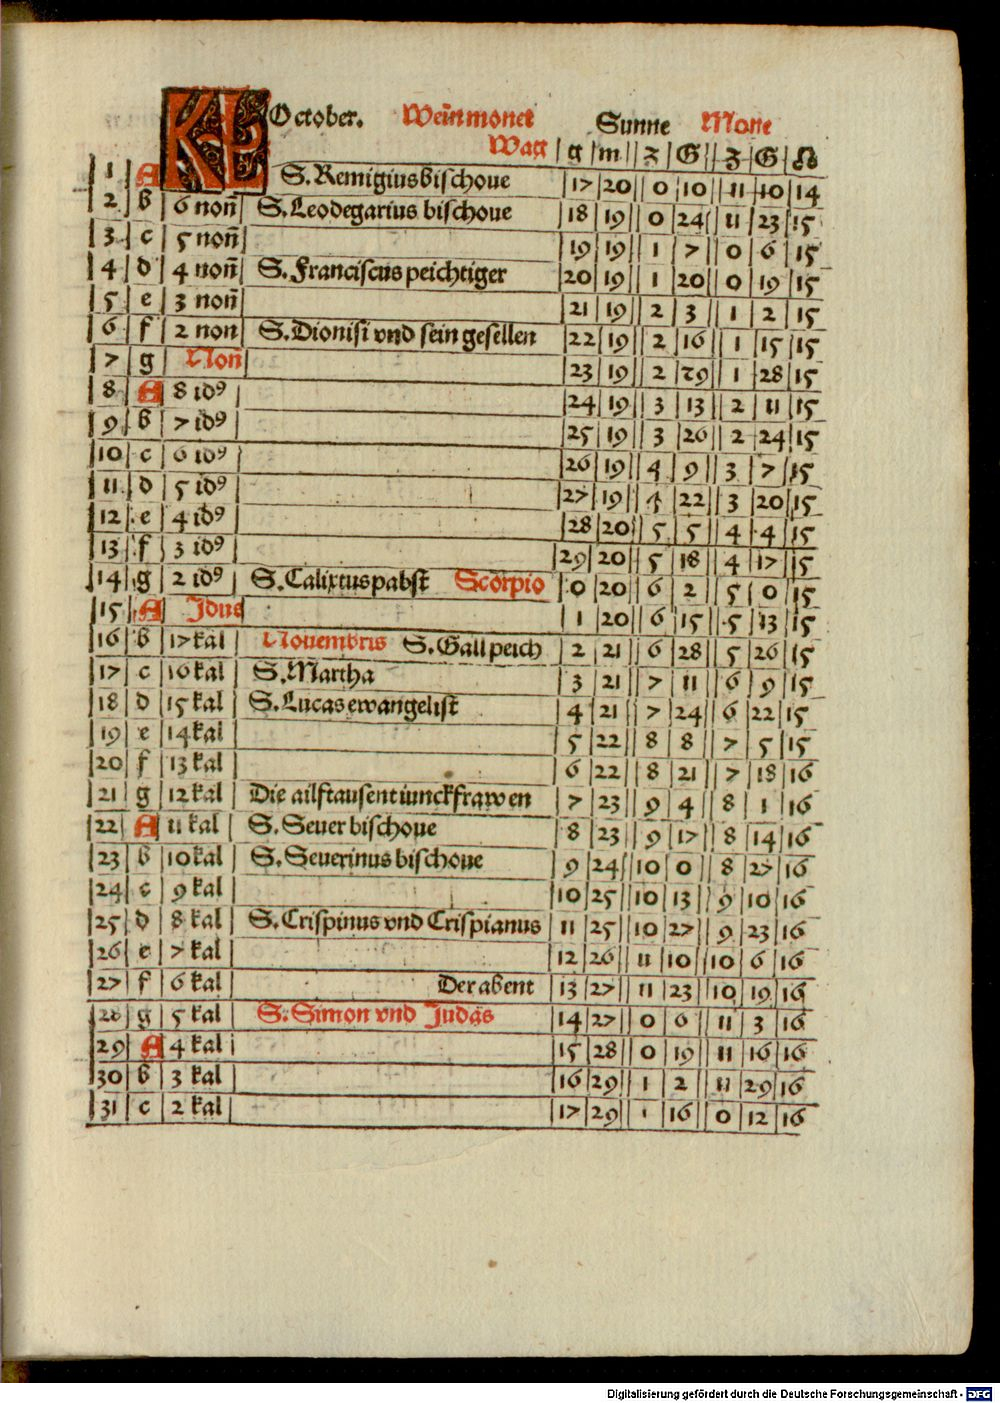 KL October. Weinmonet Sunne Mone
Wag g m Z G Z G ☊
1 A S. Remigius bischoue 17 20 0 10 11 10 14
2 b 6 non̄ S. Leodegarius bischoue 18 19 0 24 11 23 15
3 c 5 non̄ 19 19 1 7 0 6 15
4 d 4 non̄ S. Franciscus peichtiger 20 19 1 20 0 19 15
5 e 3 non̄ 21 19 2 3 1 2 15
6 f 2 non S. Dionisi vnd sein gesellen 22 19 2 16 1 15 15
7 g Non̄ 23 19 2 29 1 28 15
8 A 8 idꝰ 24 19 3 13 2 11 15
9 b 7 idꝰ 25 19 3 26 2 24 15
10 c 6 idꝰ 26 19 4 9 3 7 15
11 d 5 idꝰ 27 19 4 22 3 20 15
12 e 4 idꝰ 28 20 5 5 4 4 15
13 f 3 idꝰ 29 20 5 18 4 17 15
14 g 2 idꝰ S. Calixtus pabst Scorpio 0 20 6 2 5 0 15
15 A Idus 1 20 6 15 5 13 15
16 b 17 kal Nouembris S. Gall peich 2 21 6 28 5 26 15
17 c 16 kal S. Martha 3 21 7 11 6 9 15
18 d 15 kal S. Lucas ewangelist 4 21 7 24 6 22 15
19 e 14 kal 5 22 8 8 7 5 15
20 f 13 kal 6 22 8 21 7 18 16
21 g 12 kal Die ailftausent iunckfrawen 7 23 9 4 8 1 16
22 A 11 kal S. Seuer bischoue 8 23 9 17 8 14 16
23 b 10 kal S. Seuerinus bischoue 9 24 10 0 8 27 16
24 c 9 kal 10 25 10 13 9 10 16
25 d 8 kal S. Crispinus vnd Crispianus 11 25 10 27 9 23 16
26 e 7 kal 12 26 11 10 10 6 16
27 f 6 kal Der abent 13 27 11 23 10 19 16
28 g 5 kal S. Simon vnd Judas 14 27 0 6 11 3 16
29 A 4 kal 15 28 0 19 11 16 16
30 b 3 kal 16 29 1 2 11 29 16
31 c 2 kal 17 29 1 16 0 12 16
Digitalisierung gefördert durch die Deutsche Forschungsgemeinschaft - DFG